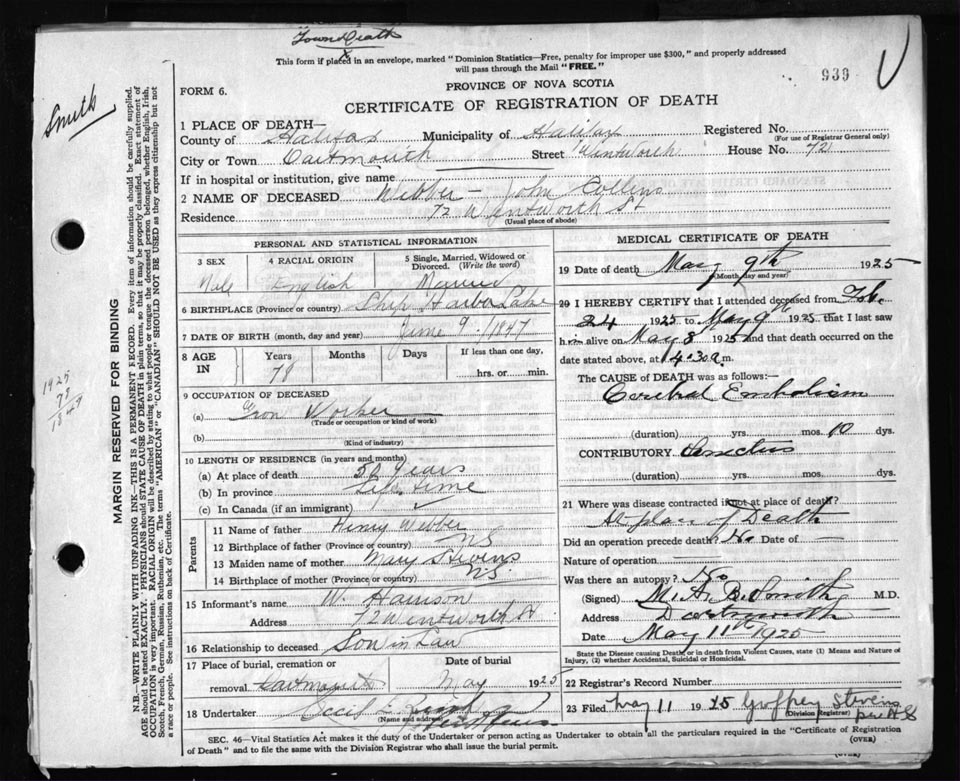 Town Death
This form if placed in an envelope, marked "Dominion Statistics—Free, penalty for improper use $300," and properly addressed
will pass through the Mail "FREE."
939
PROVINCE OF NOVA SCOTIA
FORM 6.
CERTIFICATE OF REGISTRATION OF DEATH
Smith
1 PLACE OF DEATH—
County of Halifax Municipality of Halifax Registered No.
(For use of Registrar General only)
City or Town Dartmouth Street Wentworth House No. 72
If in hospital or institution, give name
2 NAME OF DECEASED Webber - John Collins
Residence 72 Wentworth St
(Usual place of abode)
PERSONAL AND STATISTICAL INFORMATION
3 SEX 4 RACIAL ORIGIN 5 Single, Married, Widowed or
Divorced. (Write the word)
Male English Married
6 BIRTHPLACE (Province or country) Ship Harbor Lake
7 DATE OF BIRTH (month, day and year) June 9 1847
8 AGE IN Years Months Days If less than one day,
78 hrs. or min.
9 OCCUPATION OF DECEASED
(a) Iron Worker
(Trade or occupation or kind of work)
(b)
(Kind of industry)
10 LENGTH OF RESIDENCE (in years and months)
(a) At place of death 50 years
(b) In province Life time
(c) In Canada (if an immigrant)
Parents
11 Name of father Henry Webber
12 Birthplace of father (Province or country) NS
13 Maiden name of mother Mary Stevens
14 Birthplace of mother (Province or country) NS
15 Informant's name W. Harrison
Address 72 Wentworth St
16 Relationship to deceased Son in Law
17 Place of burial, cremation or Date of burial
removal Dartmouth May 1925
18 Undertaker Cecil
(Name and address)
MEDICAL CERTIFICATE OF DEATH
19 Date of death May 9th 1925
(Month, day and year)
20 I HEREBY CERTIFY that I attended deceased from Feb.
24 1925 to May 9th 1925 that I last saw
him alive on May 8 1925 and that death occurred on the
date stated above, at 4.30 a.m.
The CAUSE of DEATH was as follows:—
Cerebral Embolism
(duration) yrs. mos. 10 dys.
CONTRIBUTORY
(duration) yrs. mos. dys.
21 Where was disease contracted if not at place of death?
At place of Death
Did an operation precede death? No Date of —
Nature of operation
Was there an autopsy? No
(Signed) M. A. B. Smith M.D.
Address Dartmouth
Date May 11th 1925
State the Disease causing Death, or in death from Violent Causes, state (1) Means and Nature of
Injury, (2) whether Accidental, Suicidal or Homicidal.
22 Registrar's Record Number
23 Filed May 11 1925 Geoffrey Stevens
(Division Registrar)
(OVER)
SEC. 46—Vital Statistics Act makes it the duty of the Undertaker or person acting as Undertaker to obtain all the particulars required in the "Certificate of Registration
of Death" and to file the same with the Division Registrar who shall issue the burial permit.
(OVER)
MARGIN RESERVED FOR BINDING
1925
78
1847
N.B.—WRITE PLAINLY WITH UNFADING INK—THIS IS A PERMANENT RECORD. Every item of information should be carefully supplied.
AGE should be stated EXACTLY. PHYSICIANS should STATE CAUSE OF DEATH in plain terms, so that it may be properly classified. Exact statement of
OCCUPATION is very important. RACIAL ORIGIN will be described by stating to what people or tongue the deceased person belonged, whether English, Irish,
Scotch, French, German, Russian, Ruthenian, etc. The terms "AMERICAN" or "CANADIAN" SHOULD NOT BE USED as they express citizenship but not
a race or people. See instructions on back of Certificate.